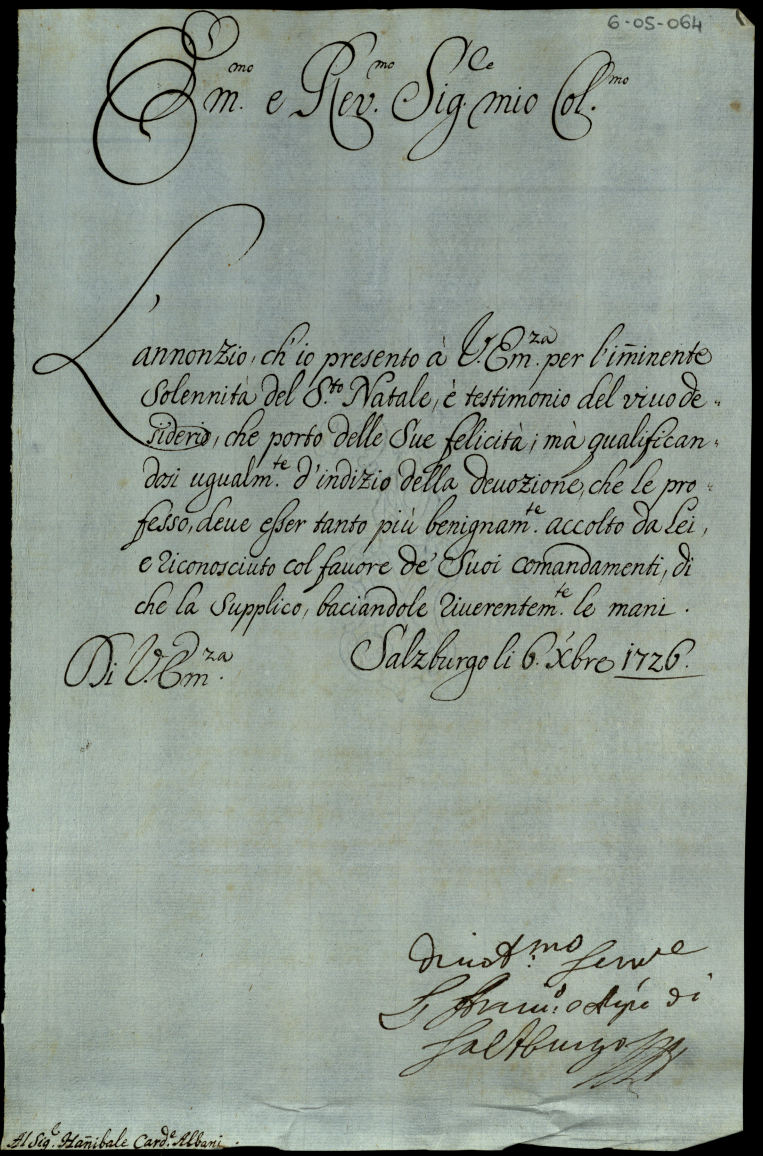 6-05-064
Em.mo e Rev.mo Sig.le mio Col.mo
L'annonzio, ch'io presento à V. Em.za per l'im̃inente
Solennità del S.to Natale, è testimonio del viuo de-
siderio, che porto delle Sue felicità; mà qualifican-
dosi ugualm.te d'indizio della deuozione, che le pro-
fesso, deue esser tanto più benignam.te accolto da Lei,
e riconosciuto col fauore de' Suoi comandamenti, di
che la Supplico, baciandole riuerentem.te le mani.
Di V. Em.za Salzburgo li 6. Xbre 1726.
diuot.mo Serue
di
Saltburgo
Al Sig.e Hañibale Card.e Albani.